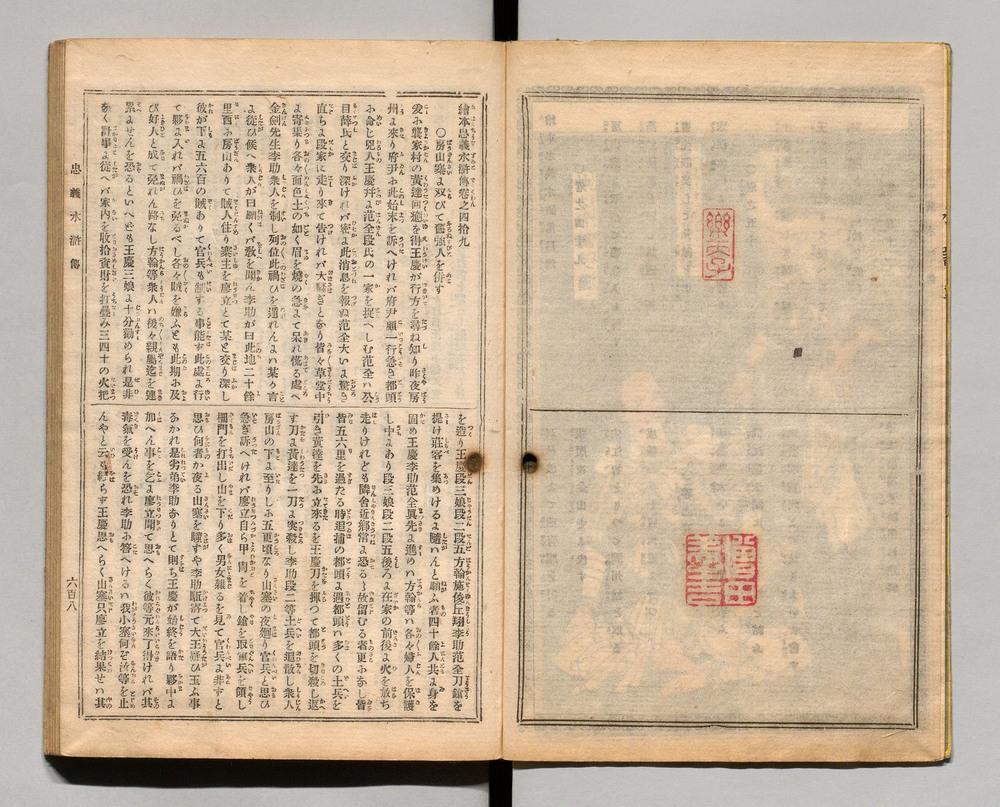 繪本忠義水滸傳卷之四拾九
○房山寨に双びて舊強人を併す
爰に龔家村の黄達回癒を得王慶が行方を尋ね知り昨夜房
州に來り府尹に此始末を訴へければ府尹顧一行急ぎ都頭
に命じ兇人王慶幷に范全段氏の一家を捉へしむ范全ハ公
目薛氏と交り深ければ密に此消息を報ぬ范全大いに驚き
直ちに段家に走り來て告ければ大に騒ぎとなり皆々草堂中
に寄集り各々面色土の如く眉を燒の急にて呆れ慌る處へ
金劍先生李助衆人を制し列位此禍ひを遁れんにハ某が言
に從ひ候へ衆人が曰願くバ敎を聞ん李助が曰此地二十餘
里西に房山ありて賊人住り寨主を廖立とて某と交り深し
彼が下に五六百の賊ありて官兵も制する事能ず此處に行
て夥に入れバ禍ひを免るべし各々賊を嫌ふとも此期に及
び好人と成て免れん路なし方翰等衆人ハ後々親屬迄を連
累ませんを恐るといへども王慶三娘に十分勸められ是非
なく計事に從へバ家内を收拾資財を打疊み三四十の火把
を造り王慶段三娘段二段五方翰施俊丘翔李助范全刀鎗を
提げ莊客を集めけるに隨ハんと願ふ者四十餘人共に身を
固め王慶李助范全眞先に進め方翰等ハ各々婦人を保護
し中にあり段三娘段二段五後ろに在家の前後に火を放ち
走りけれども隣舍近鄕常に恐るゝ故留むる者更になし皆
皆五六里を過たる時追捕の都頭に遇都頭ハ多くの土兵を
引き黄達を先に立來るを王慶刀を揮つて都頭を切殺し返
す刀に黄達を一刀に突殺し李助段二等土兵を追散し衆人
房山の下に至りしに五更頃なり山寨の夜廻り官兵と思ひ
急ぎ訴へければ廖立自ら甲冑を着し鎗を取軍兵を領し
柵門を打出し山を下り多く男女雜るを見て官兵に非ずと
思ひ何者か夜る山寨を騷すや李助駈寄て大王忘ひ玉ふ事
なかれ是劣弟李助なりとて則ち王慶が始終を語り夥中に
加へん事を乞に廖立聞て思へらく彼等元來了得ければ其
毒氣を受んを恐れ李助に答へけるハ我小寨何ぞ汝等を止
んやと云も終らず王慶思へらく山寨只廖立を結果せハ其
忠義水滸傳
六百八